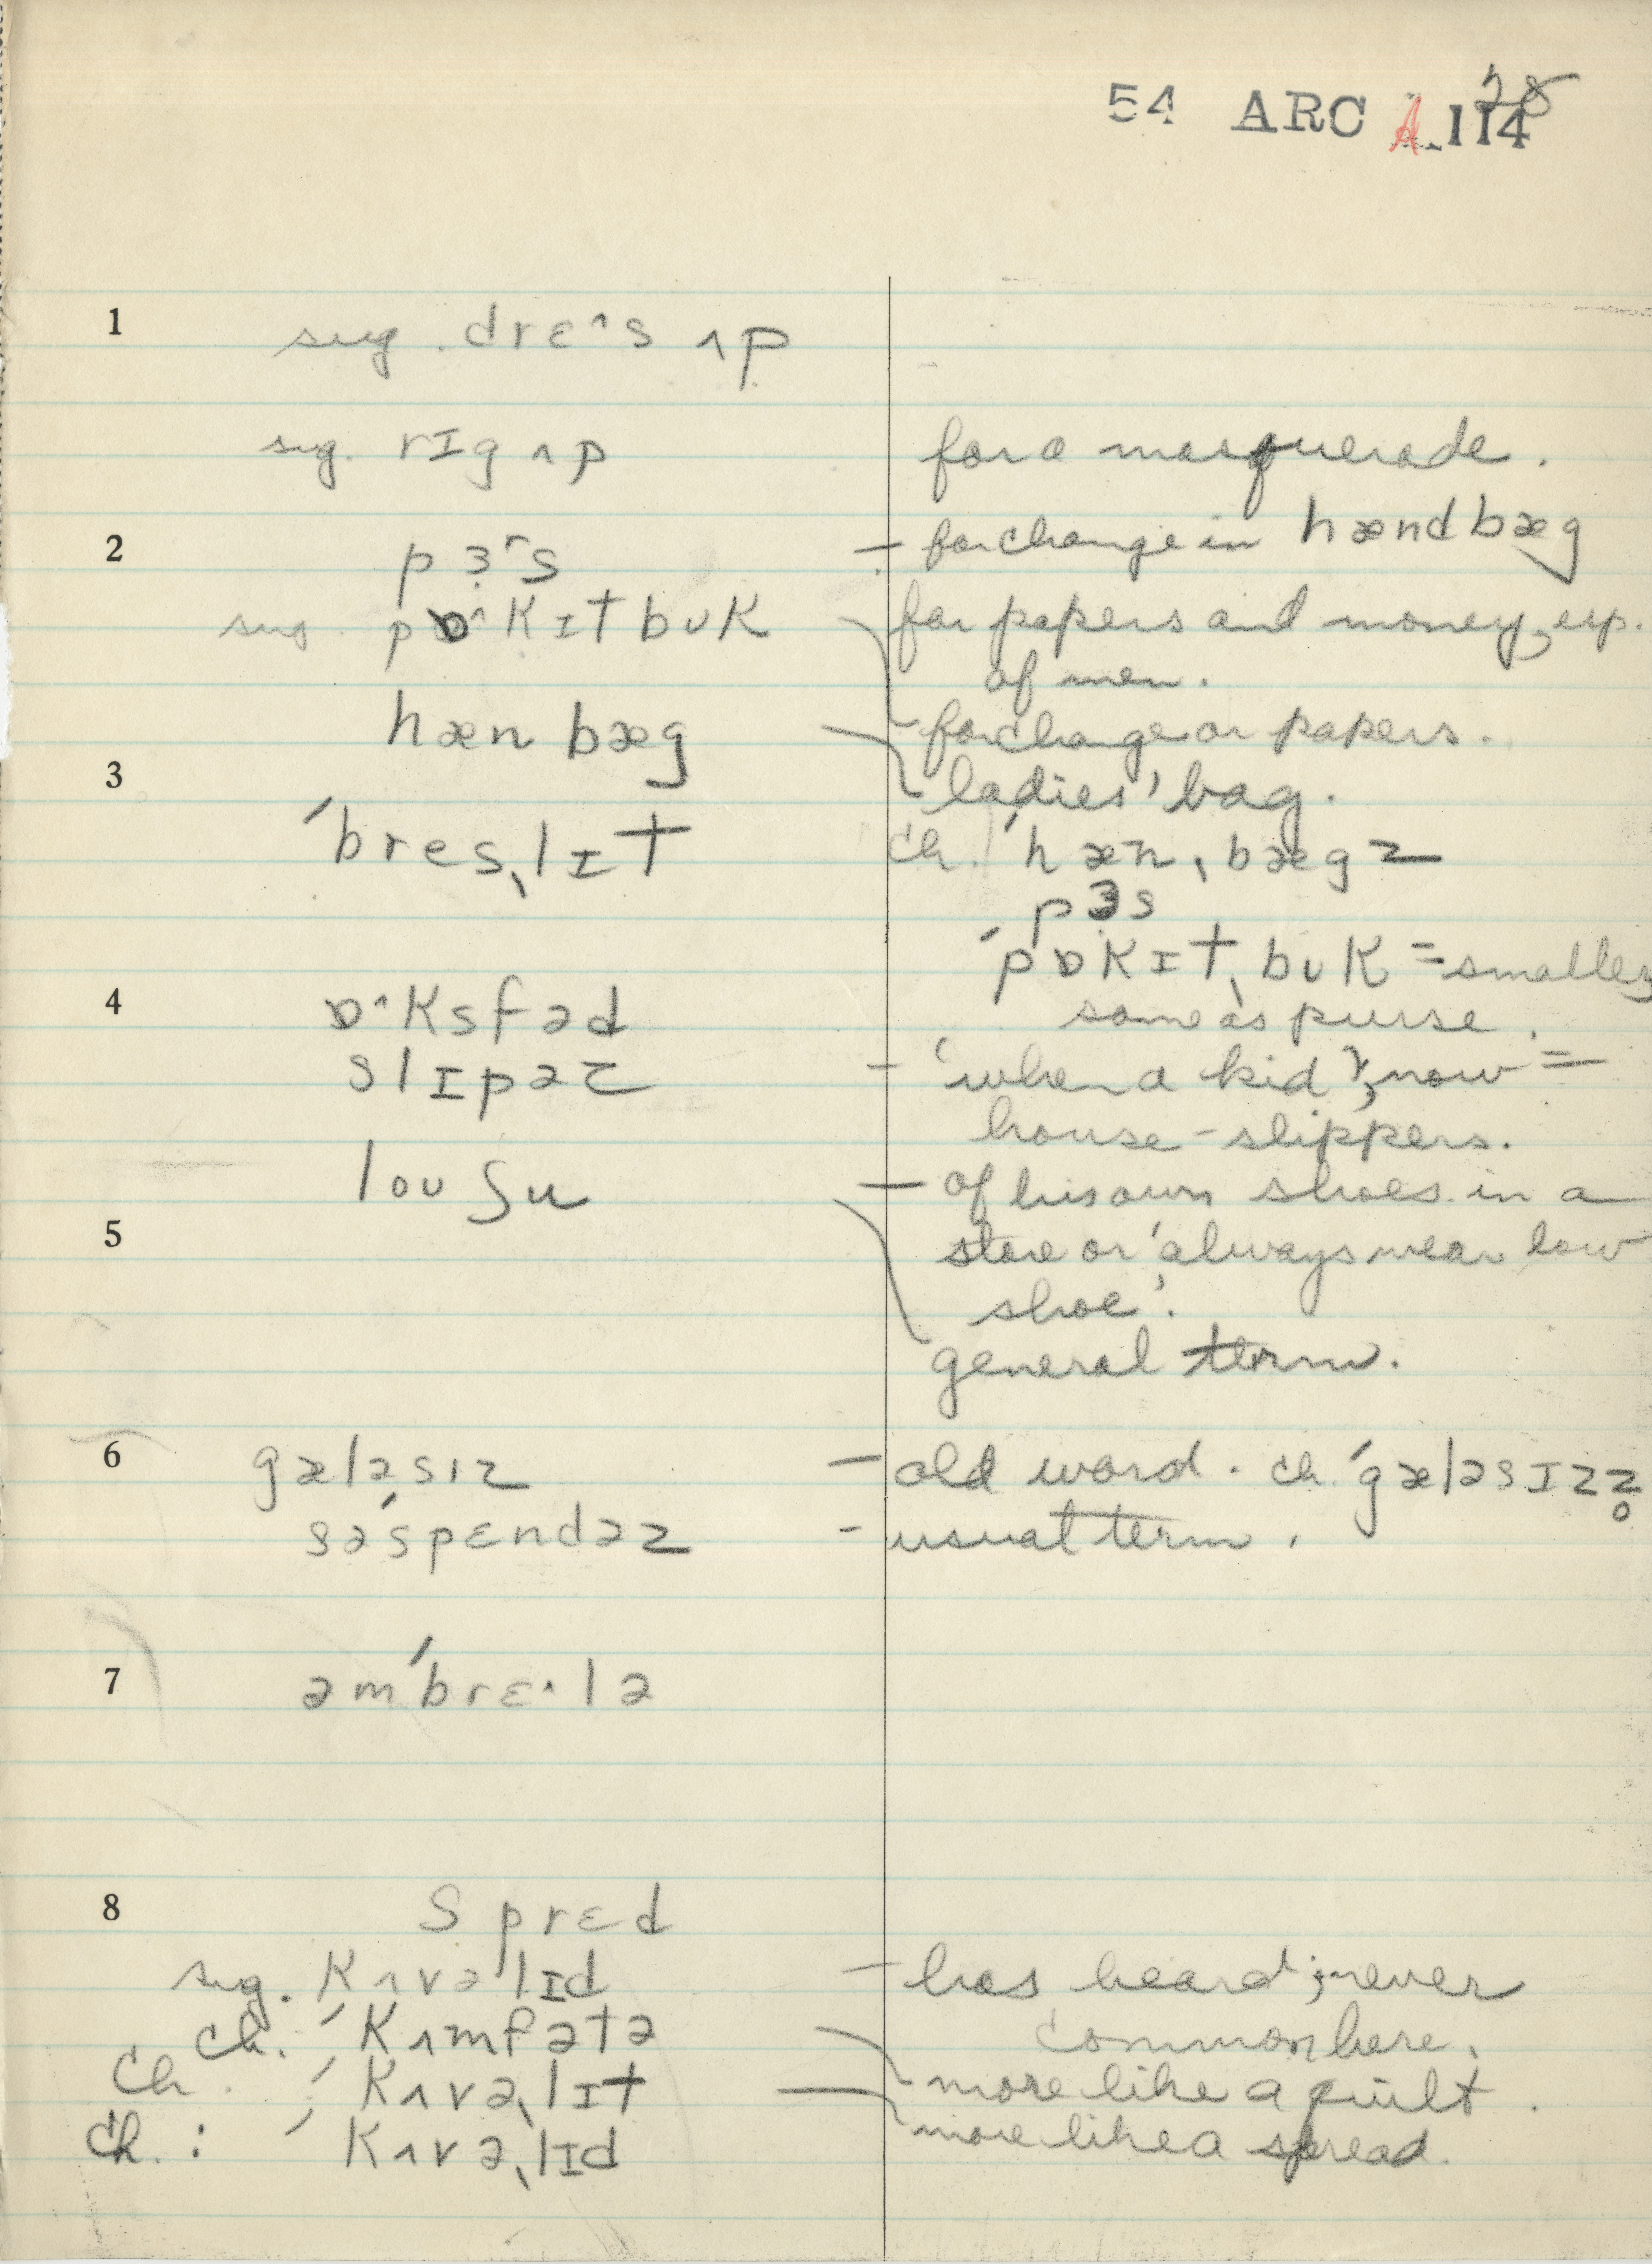 54 ARC A. 114 28
1 sug. drɛ^s ʌp
sug. rɪg ʌp for a masquerade.
2 pɜrs – for change in hændbæg
sug. pɒ^kɪtbʊk for papers and money, esp.
of men.
hænbæg – for change or papers.
3 – ladies' bag.
ˈbresˌlɪt ch. ˈhænˌbægz
pɜs
ˈpɒkɪtˌbʊk = smaller
4 ɒ^ksfəd same as purse.
slɪpəz – 'when a kid'; now =
house-slippers.
loʊʃu – of his own shoes in a
5 store or 'always wear low
shoe'.
general term.
6 gæləsɪz – old word. ch. ˈgæləsɪzz̥
səˈspɛndəz – usual term.
7 əmˈbrɛ^lə
8 sprɛd
sug. kʌvəlɪd – has heard; never
ch. ˈkʌmfətə common here.
ch. ˈkʌvəˌlɪt – more like a quilt.
ch: ˈkʌvəˌlɪd more like a spread.